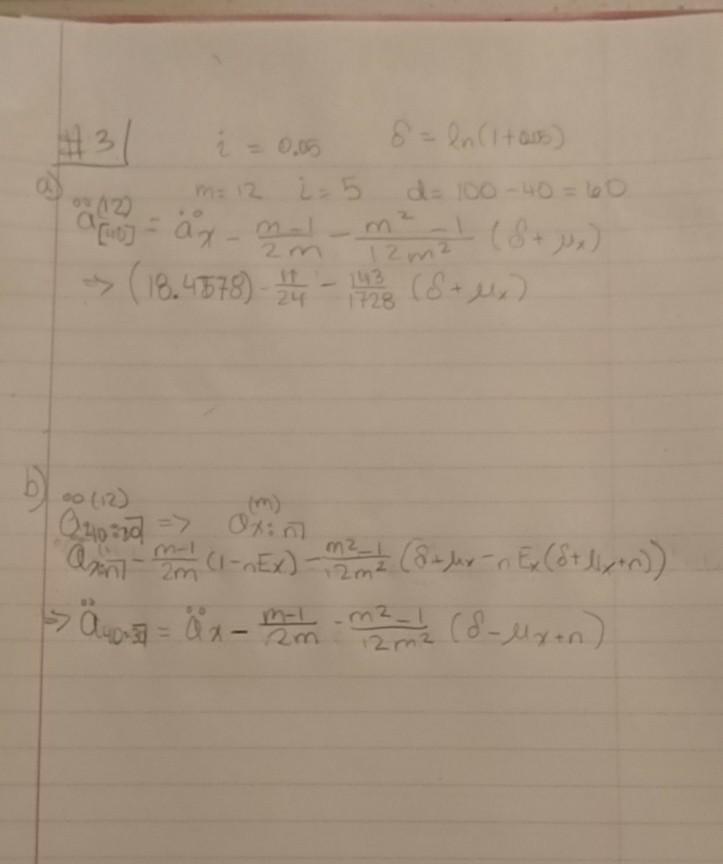 #3 i = 0.05 δ = ln(1+0.05)
a) m=12 i=5 d=100-40=60
ä(12)[40] = äx - m-1/2m - m²-1/12m² (δ+μx)
⇒ (18.4578) - 11/24 - 143/1728 (δ+μx)
b) ä(12)40:20 ⇒ a(m)x:n
ax:n - m-1/2m (1-nEx) - m²-1/12m² (δ+μx-nEx(δ+μx+n))
⇒ ä40: = äx - m-1/2m - m²-1/12m² (δ-μx+n)